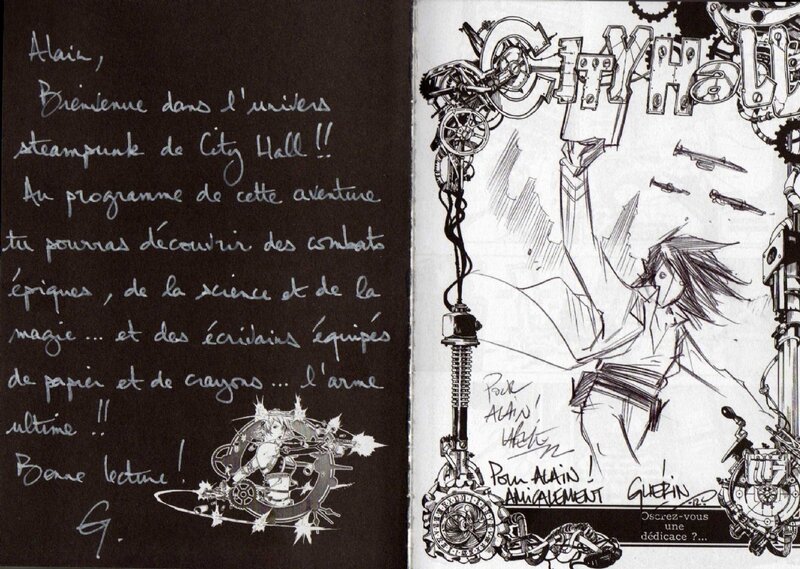 Alain,
Bienvenue dans l'univers
steampunk de City Hall !!
Au programme de cette aventure
tu pourras découvrir des combats
épiques, de la science et de la
magie... et des écrivains équipés
de papier et de crayons... l'arme
ultime !!
Bonne lecture !
G.
CITY HALL
Pour
ALAIN !
Pour ALAIN !
AMICALEMENT
GUÉRIN
Oserez-vous
une
dédicace ?...